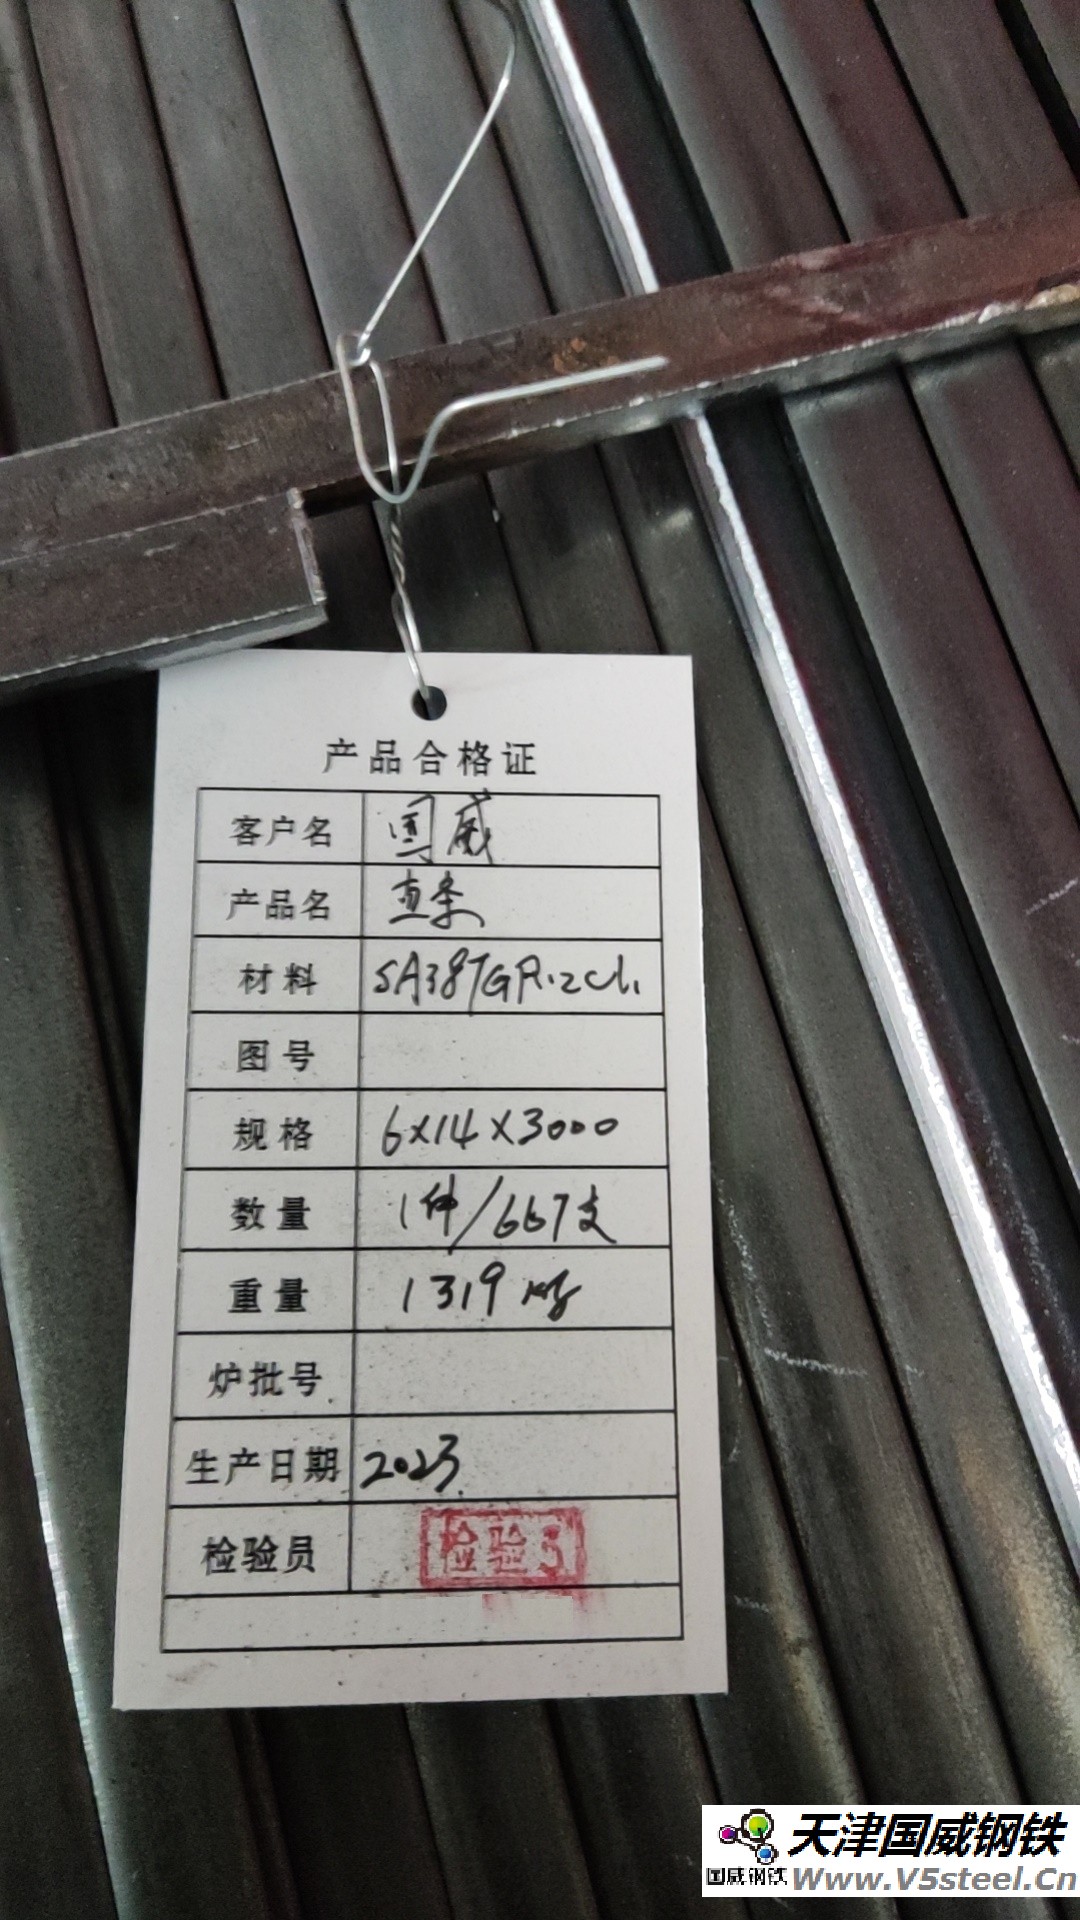 产品合格证
客户名 国威
产品名 直条
材料 SA387GR12CL1
图号
规格 6×14×3000
数量 1件/667支
重量 1319kg
炉批号
生产日期 2023
检验员 检验3
天津国威钢铁
国威钢铁 Www.V5steel.Cn